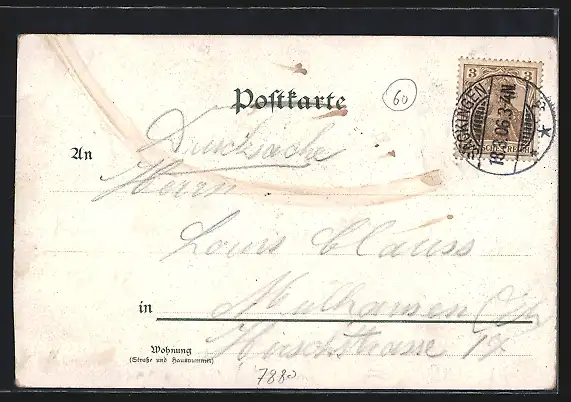 Postkarte
60
3
SÄCKINGEN
18 06.3-4N.
Drucksache
An
Herrn
Louis Clauss
in Mülhausen
Wohnung
(Straße und Hausnummer)
Hirschstrasse 14
7880